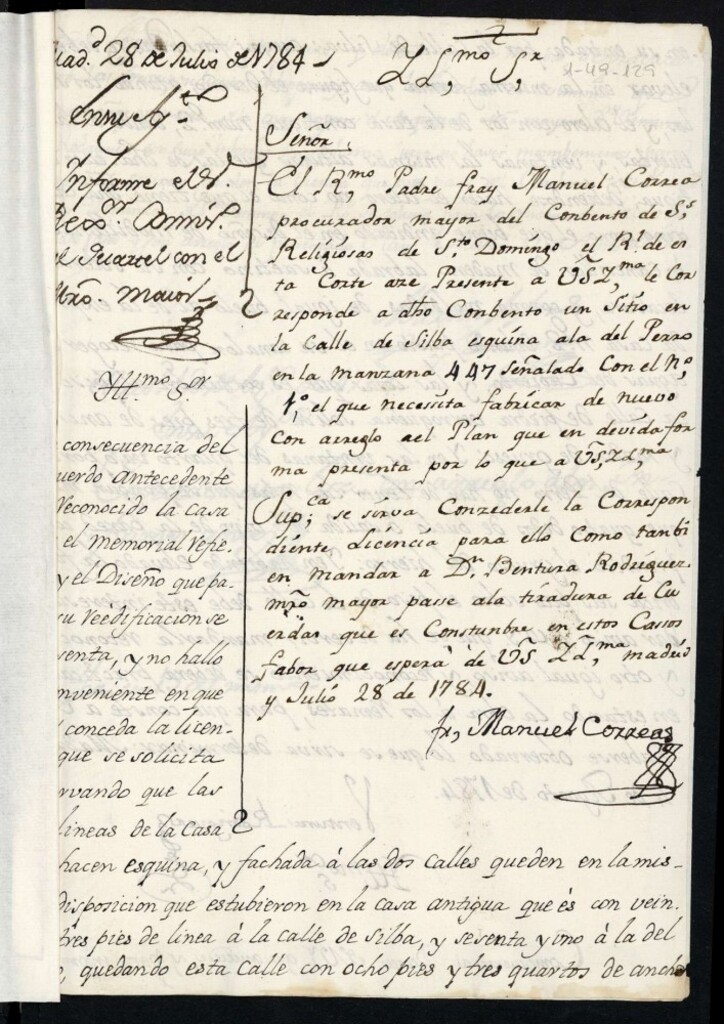 Mad.d 28 de Julio de 1784
Yl,mo S,r
1-49-129
En su Ay.to
Informe el S.r
Rex.or Comis.
el Quartel con el
Mro. Maior
Yll.mo S.or
consecuencia del
uerdo antecedente
Reconocido la casa
el Memorial refie.
y el Diseño que pa-
su reedificacion se
senta, y no hallo
nveniente en que
conceda la licen-
que se solicita
rvando que las
lineas de la Casa
Señor,
El R,mo Padre fray Manuel Correa
procurador mayor del Conbento de S,s
Religiosas de S,to Domingo el R,l de es
ta Corte aze Presente a VS Yl,ma le Cor
responde a dho Conbento un Sitio en
la Calle de Silba esquina ala del Perro
en la manzana 447 señalado Con el N,o
1,o el que necessita fabricar de nuevo
Con arreglo ael Plan que en devida for
ma presenta por lo que a VS, Yl,ma
Sup,ca se sirva Conzederle la Correspon
diente Licencia para ello Como tanbi
en mandar a D.n Bentura Rodriguez
mro mayor passe ala tiradura de Cu
erdas que es Constunbre en estos Cassos
fabor que espera de VS Yl,ma madrid
y Julio 28 de 1784.
fr, Manuel Correas
hacen esquina, y fachada à las dos calles queden en la mis-
disposicion que estubieron en la casa antigua que és con vein.
tres pies de linea à la calle de Silba, y sesenta y uno à la del
, quedando esta calle con ocho pies y tres quartos de ancho